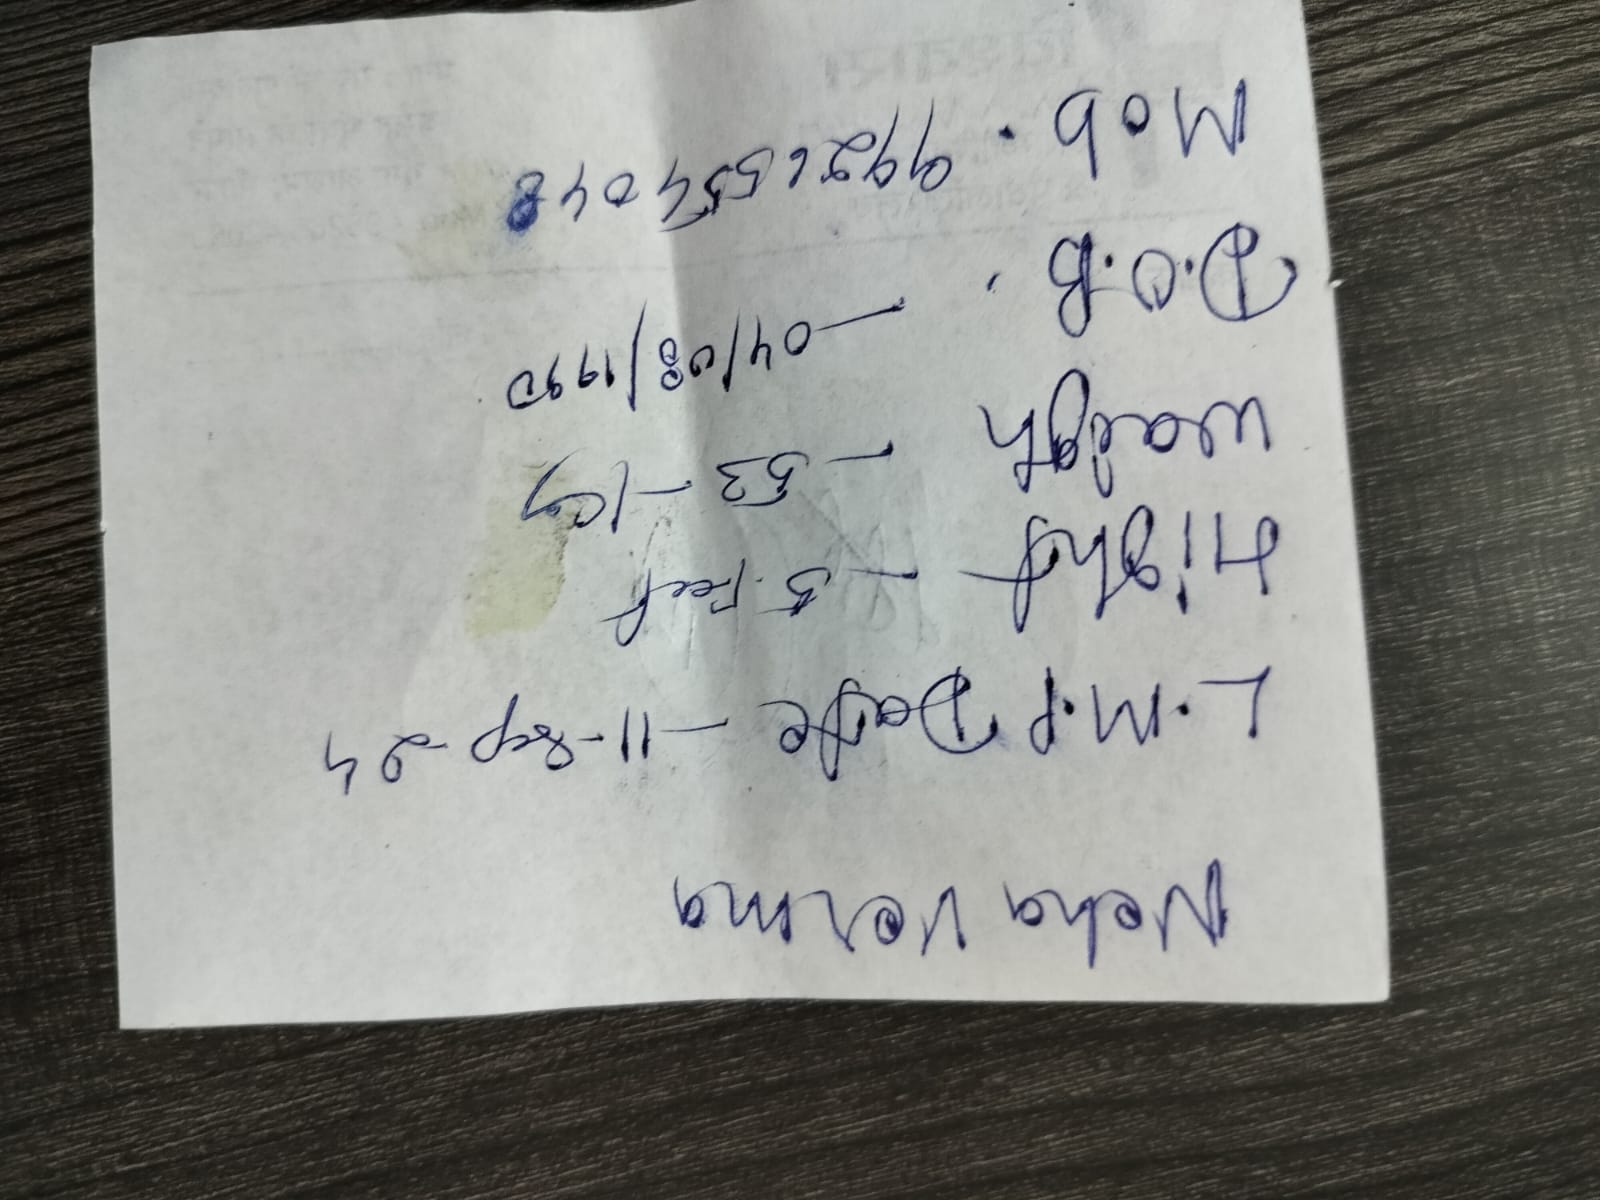 Neha Verma
L.M.P Date - 11-Sep-24
Hight - 5.Feet
waigh - 53-kg
D.O.B. - 04/08/1990
Mob. 9926554048